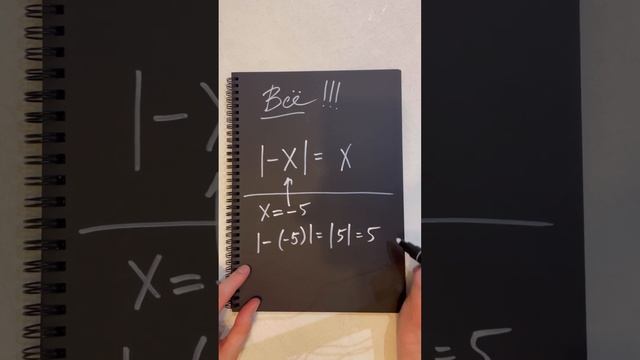 Всё !!!
|-X| = X
X = -5
|-(-5)| = |5| = 5